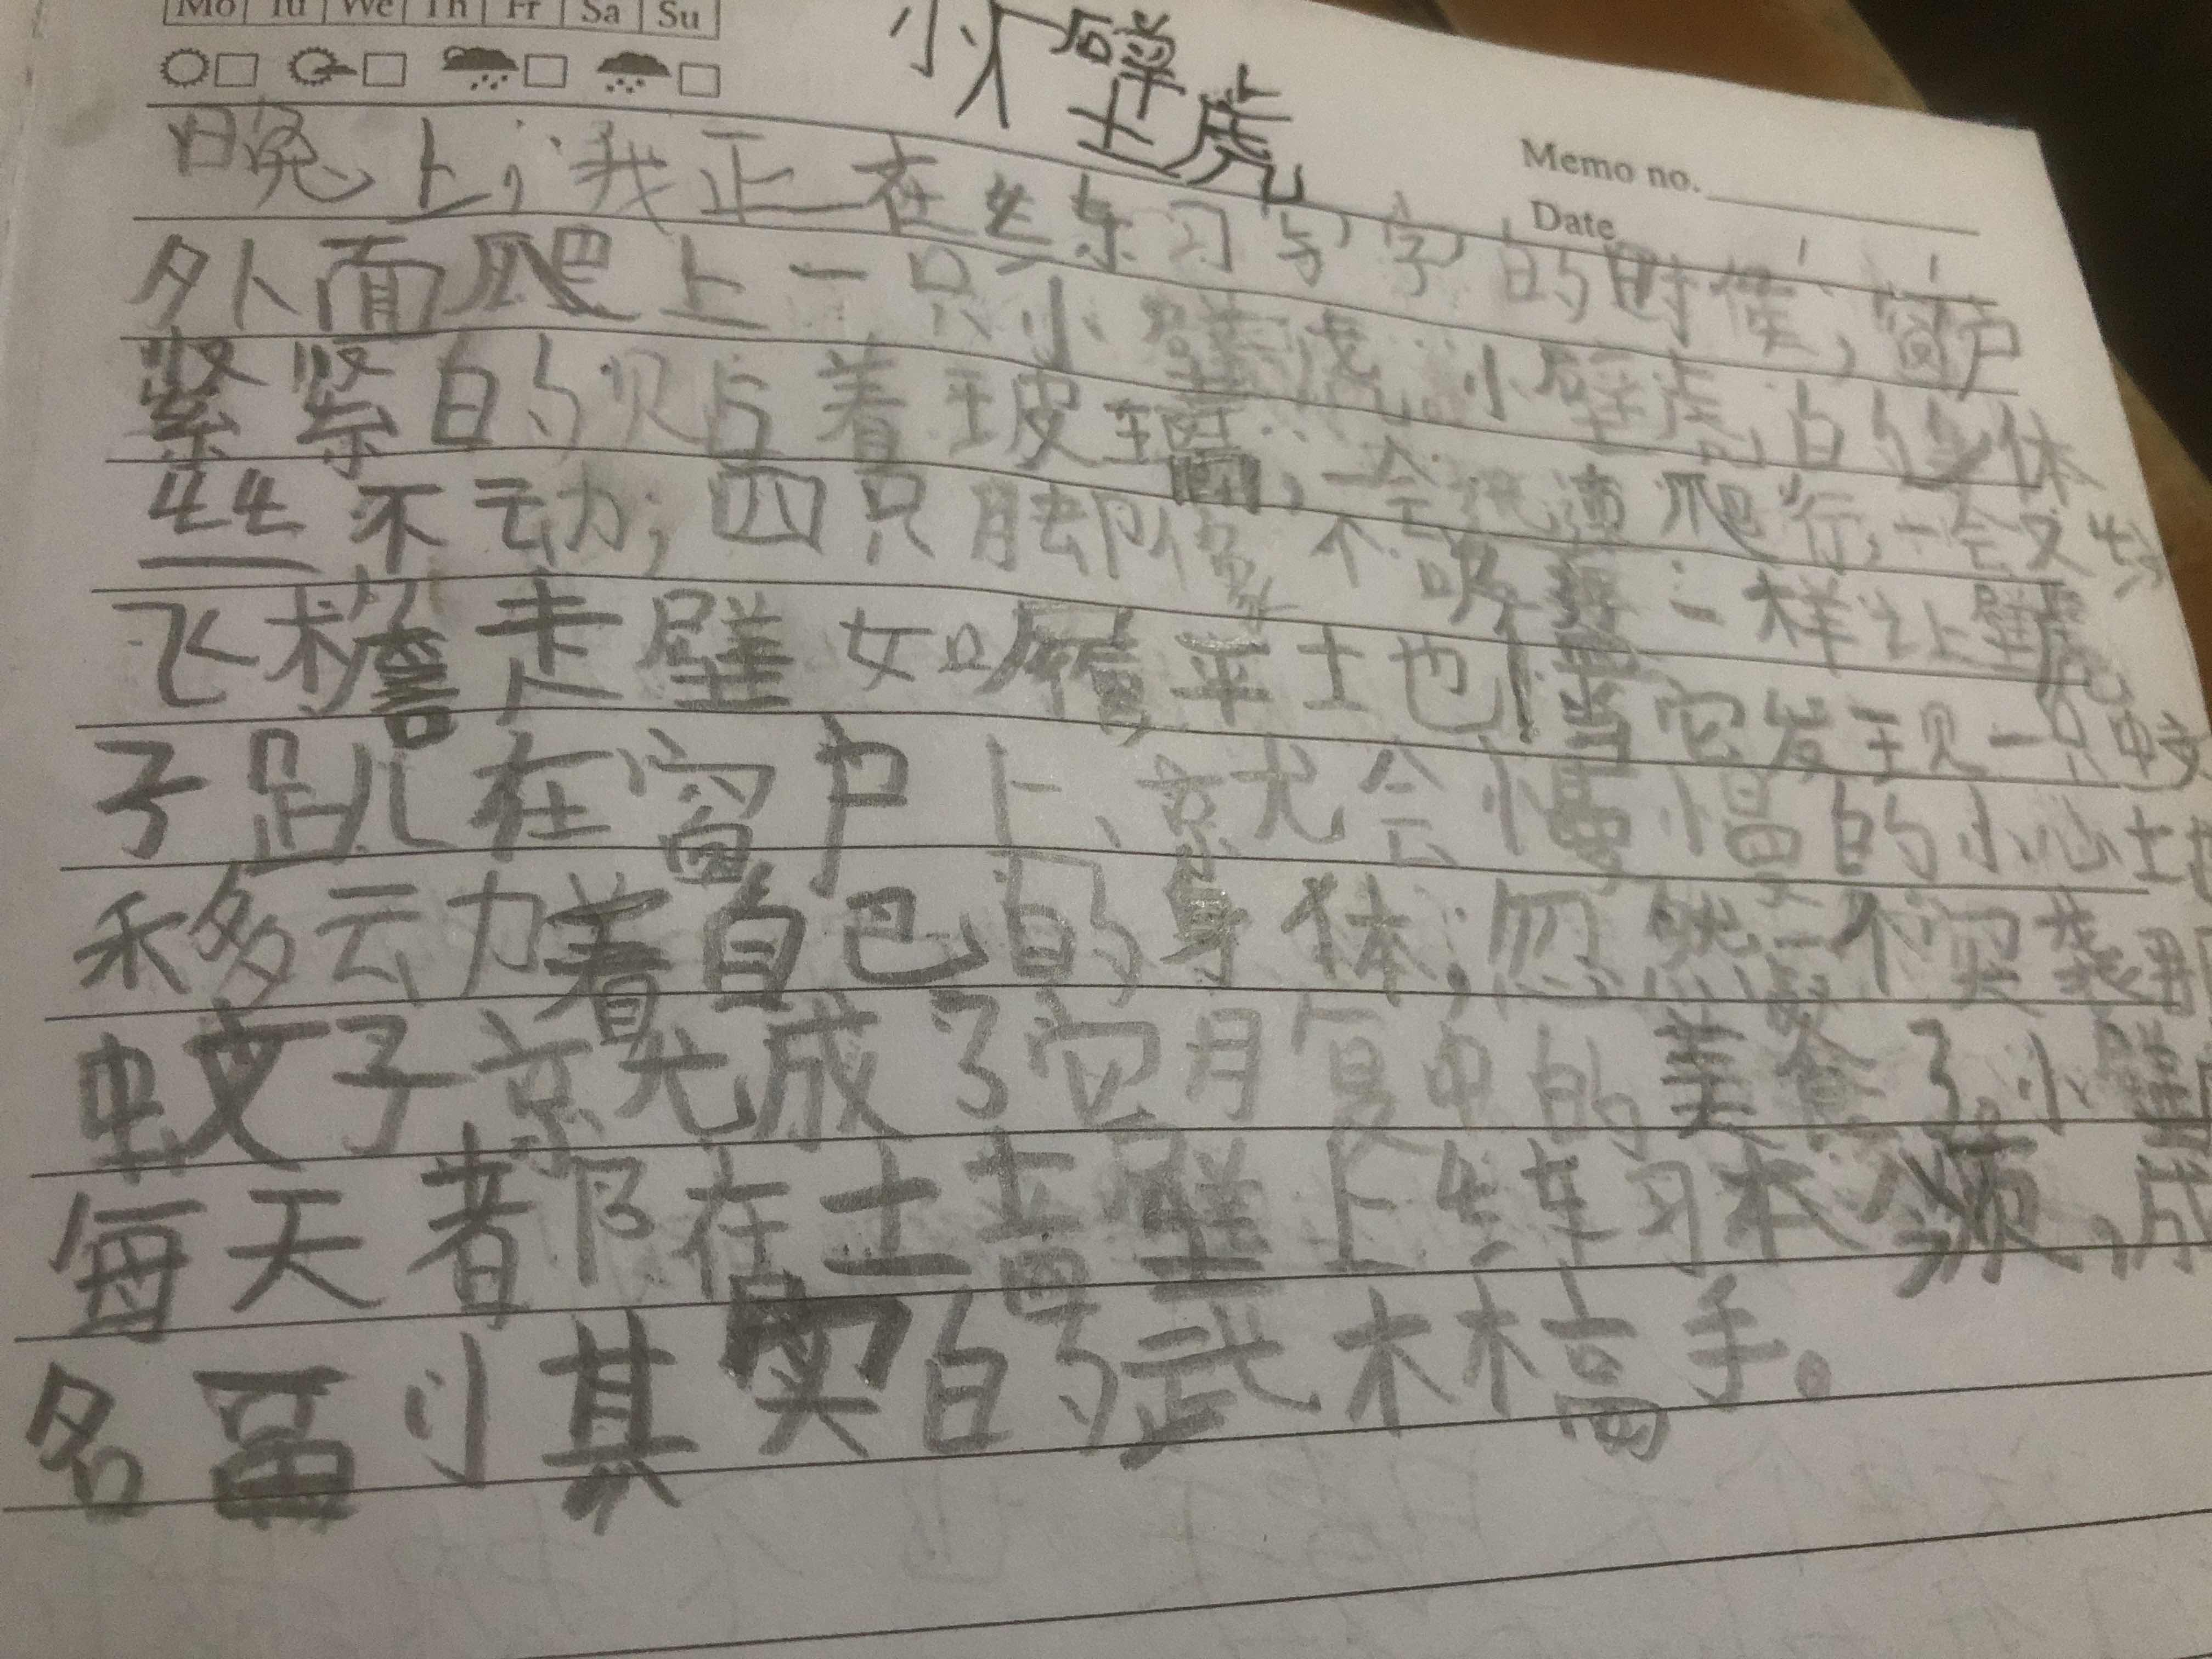 Mo Tu We Th Fr Sa Su
小壁虎
Memo no.
Date
晚上,我正在练习写字的时候,窗户
外面爬上一只小壁虎,小壁虎的身体
紧紧的贴着玻璃,一会迅速爬行,一会又
一动不动;四只脚像个吸盘一样让壁虎
飞檐走壁如履平地,当它发现一只蚊
子趴在窗户上,就会慢慢的小心
移动着自己的身体,忽然一个突袭
蚊子就成了它腹中的美食了。小壁
每天都在墙壁上练习本领,成
名副其实的武林高手。